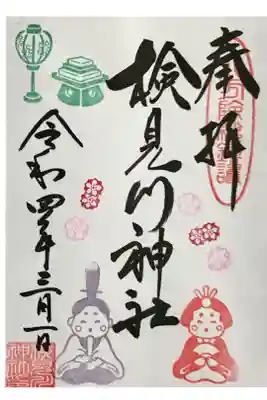 奉拝
検見川神社
令和四年三月一日